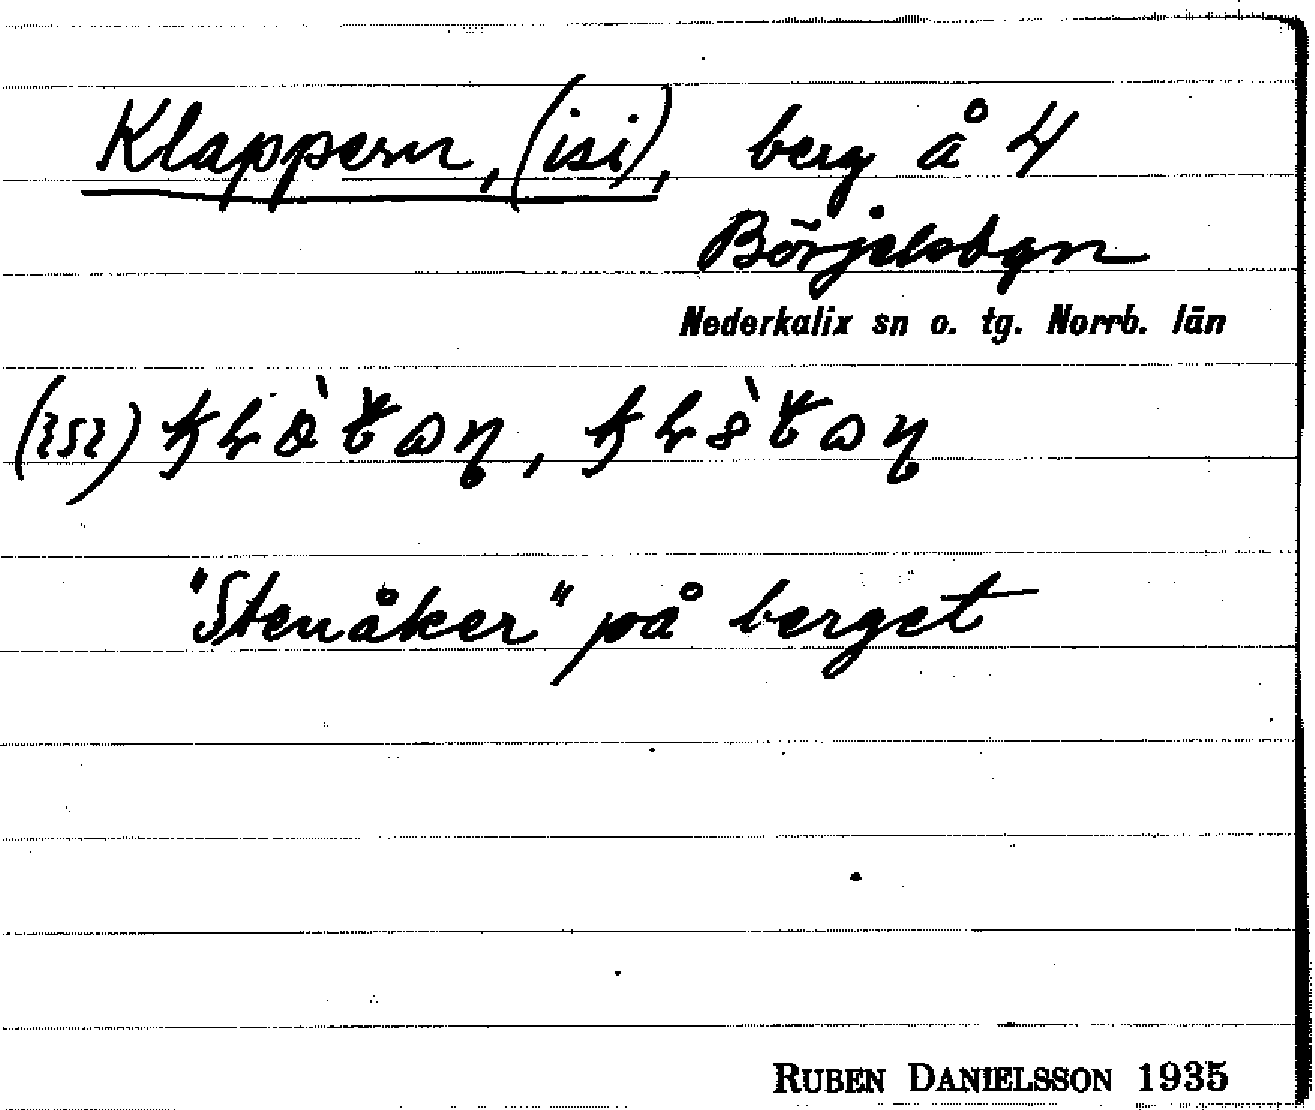 Klappern, (isi), berg å 4
Börjelsbyn
Nederkalix sn o. tg. Norrb. län
"Stenåker" på berget
RUBEN DANIELSSON 1935